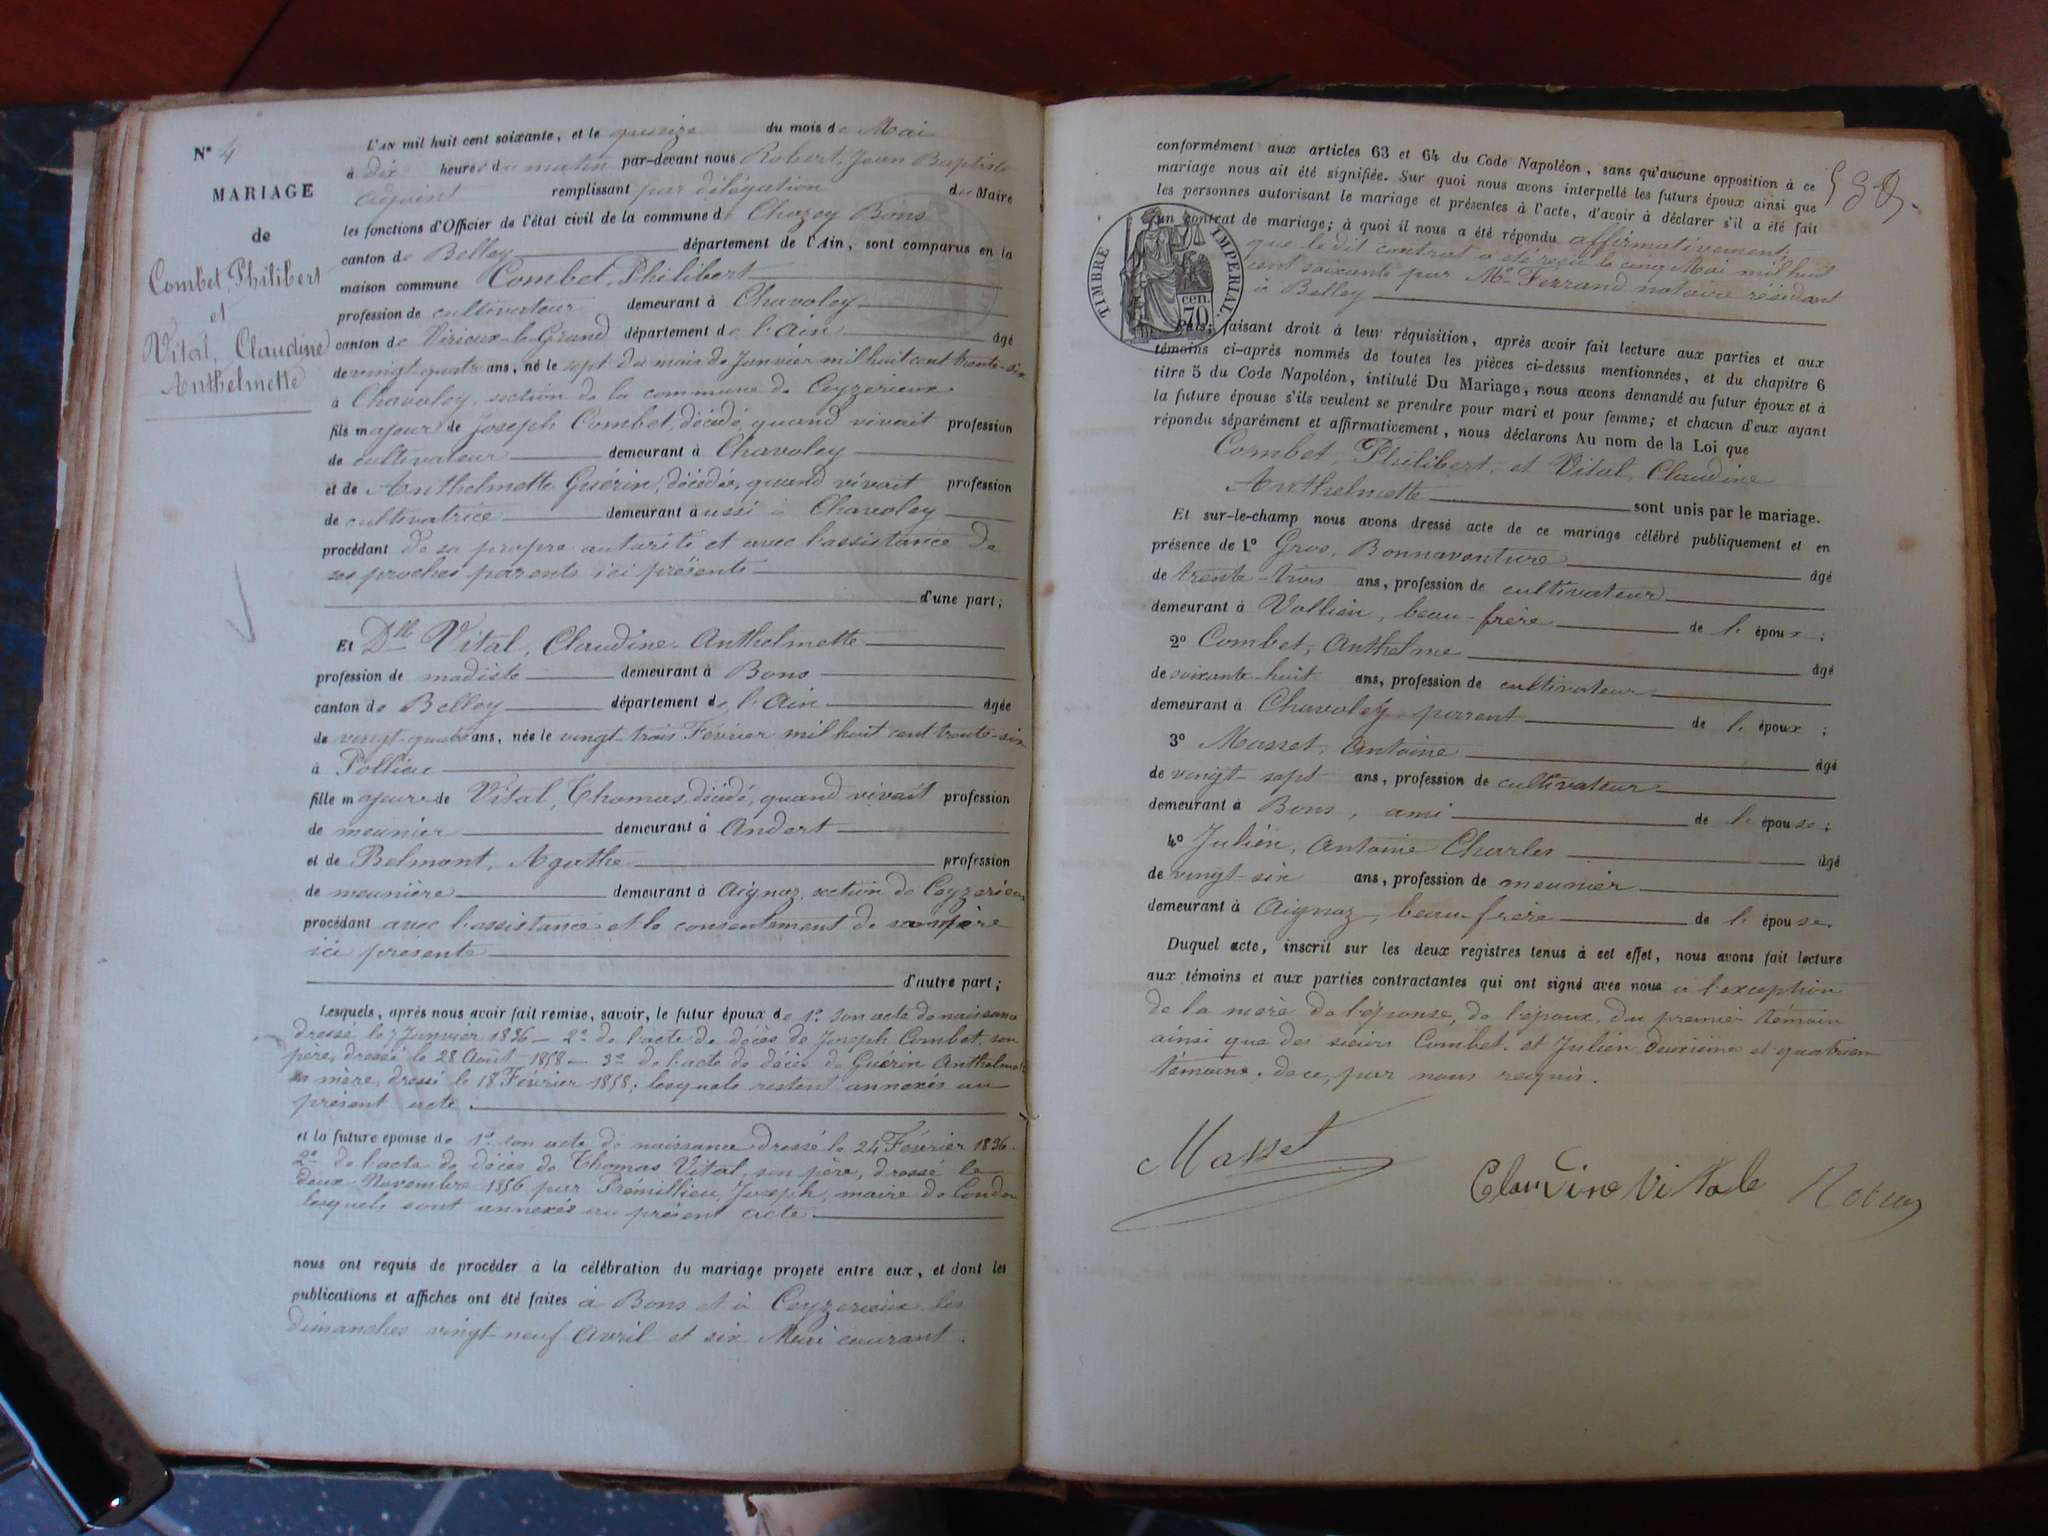 N° 4
MARIAGE
de
Combet, Philibert
et
Vital, Claudine
Anthelmette
L'AN mil huit cent soixante, et le quinze du mois de Mai
à dix heures du matin par-devant nous Robert, Jean Baptiste
adjoint remplissant par délégation du Maire
les fonctions d'Officier de l'état civil de la commune de Chazey Bons
canton de Belley département de l'Ain, sont comparus en la
maison commune Combet, Philibert
profession de cultivateur demeurant à Chavoley
canton de Virieux-le-Grand département de l'Ain âgé
de vingt-quatre ans, né le sept du mois de Janvier mil huit cent trente-six
à Chavoley, section de la commune de Ceyzerieux
fils majeur de Joseph Combet, décédé, quand vivait profession
de cultivateur demeurant à Chavoley
et de Anthelmette Guérin, décédée, quand vivait profession
de cultivatrice demeurant aussi à Chavoley
procédant de sa propre autorité et avec l'assistance de
ses proches parents ici présents
d'une part;
Et Dlle Vital, Claudine Anthelmette
profession de modiste demeurant à Bons
canton de Belley département de l'Ain âgée
de vingt-quatre ans, née le vingt-trois Février mil huit cent trente-six
à Pollieu
fille majeure de Vital, Thomas, décédé, quand vivait profession
de meunier demeurant à Andert
et de Belmont, Agathe profession
de meunière demeurant à Aignoz, section de Ceyzerieu
procédant avec l'assistance et le consentement de sa mère
ici présente
d'autre part;
Lesquels, après nous avoir fait remise, savoir, le futur époux de 1° son acte de naissance
dressé le 7 Janvier 1836 — 2° de l'acte de décès de Joseph Combet, son
père, dressé le 28 Août 1858 — 3° de l'acte de décès de Guérin Anthelmette
sa mère, dressé le 18 Février 1858; lesquels restent annexés au
présent acte.
et la future épouse de 1° son acte de naissance dressé le 24 Février 1836.
2° de l'acte de décès de Thomas Vital, son père, dressé le
deux Novembre 1856 par Prémillieu, Joseph, maire de Condon
lesquels sont annexés au présent acte.
nous ont requis de procéder à la célébration du mariage projeté entre eux, et dont les
publications et affiches ont été faites à Bons et à Ceyzerieux les
dimanches vingt-neuf Avril et six Mai courant.
conformément aux articles 63 et 64 du Code Napoléon, sans qu'aucune opposition à ce
mariage nous ait été signifiée. Sur quoi nous avons interpellé les futurs époux ainsi que
les personnes autorisant le mariage et présentes à l'acte, d'avoir à déclarer s'il a été fait
un contrat de mariage; à quoi il nous a été répondu affirmativement;
que le dit contrat a été reçu le cinq Mai mil huit
cent soixante par Me Ferrand notaire résidant
à Belley
TIMBRE IMPERIAL.
70 cen.
faisant droit à leur réquisition, après avoir fait lecture aux parties et aux
témoins ci-après nommés de toutes les pièces ci-dessus mentionnées, et du chapitre 6
titre 5 du Code Napoléon, intitulé Du Mariage, nous avons demandé au futur époux et à
la future épouse s'ils veulent se prendre pour mari et pour femme; et chacun d'eux ayant
répondu séparément et affirmativement, nous déclarons Au nom de la Loi que
Combet, Philibert, et Vital, Claudine
Anthelmette sont unis par le mariage.
Et sur-le-champ nous avons dressé acte de ce mariage célébré publiquement et en
présence de 1° Gros, Bonnaventure âgé
de trente-trois ans, profession de cultivateur
demeurant à Vollien, beau-frère de l'époux;
2° Combet, Anthelme âgé
de soixante-huit ans, profession de cultivateur
demeurant à Chavoley parent de l'époux;
3° Masset, Antoine âgé
de vingt-sept ans, profession de cultivateur
demeurant à Bons, ami de l'épouse;
4° Julien, Antoine Charles âgé
de vingt-six ans, profession de meunier
demeurant à Aignoz, beau-frère de l'épouse.
Duquel acte, inscrit sur les deux registres tenus à cet effet, nous avons fait lecture
aux témoins et aux parties contractantes qui ont signé avec nous à l'exception
de la mère de l'épouse, de l'époux, du premier témoin
ainsi que des sieurs Combet et Julien deuxième et quatrième
témoins, de ce, par nous requis.
Masset
Claudine Vitale